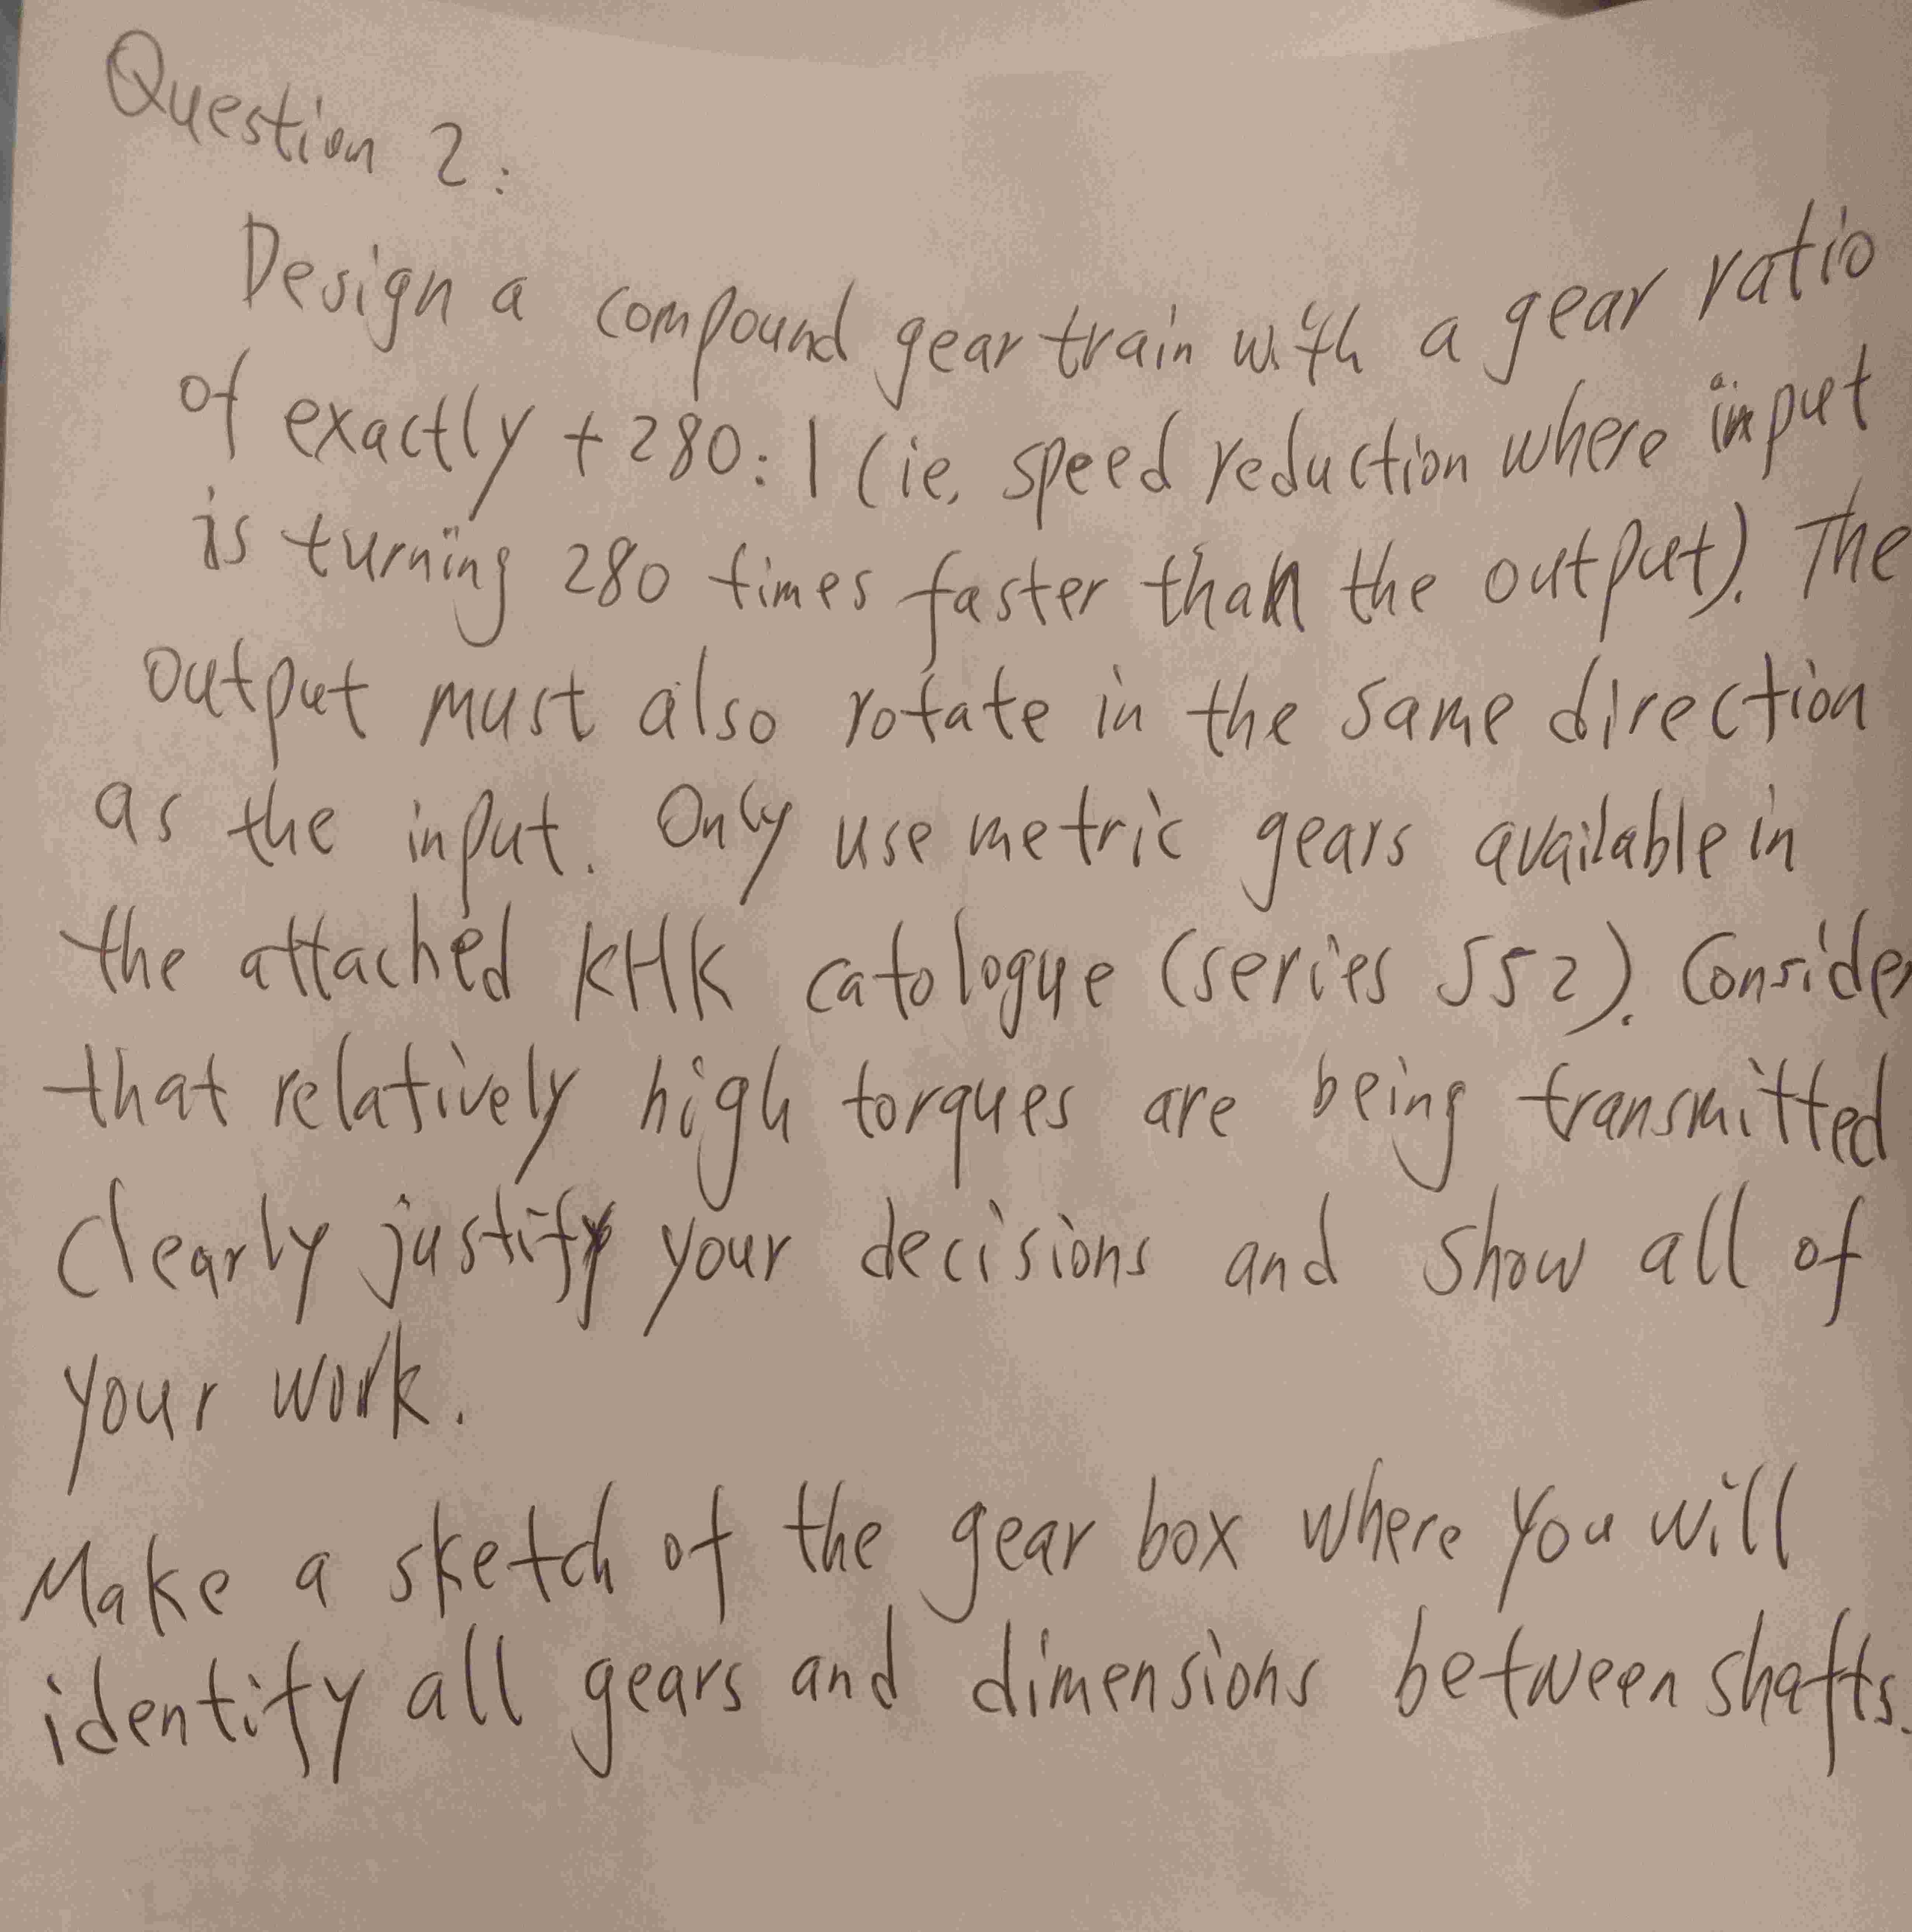 Question 2:
Design a compound gear train with a gear ratio
of exactly +280:1 (ie. speed reduction where input
is turning 280 times faster than the output). The
output must also rotate in the same direction
as the input. Only use metric gears available in
the attached KHK catologue (series SS2). Consider
that relatively high torques are being transmitted
Clearly justify your decisions and show all of
your work.
Make a sketch of the gear box where you will
identify all gears and dimensions between shafts.